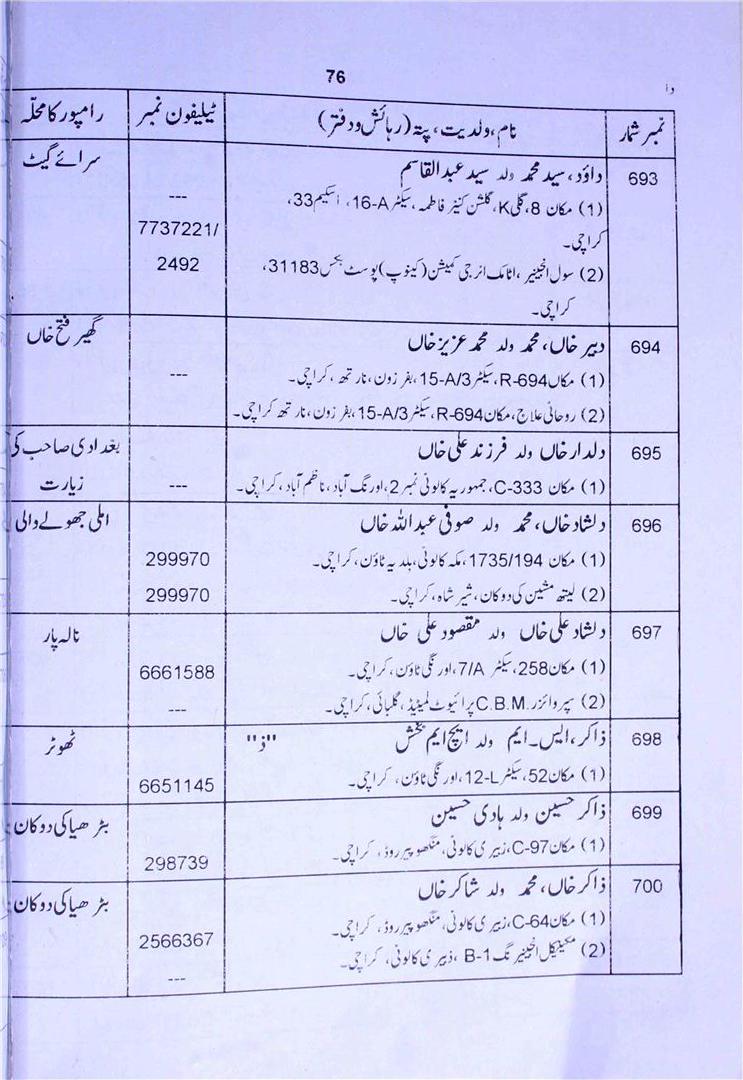 76
دا
نمبر شمار	نام، ولدیت، پتہ (رہائش و دفتر)	ٹیلیفون نمبر	رامپور کا محلّہ
693	داؤد، سید محمد ولد سید عبدالقاسم	سرائے گیٹ
(1) مکان 8، گلی K، گلشن کنیز فاطمہ، سیکٹر 16-A، اسکیم 33،	---
کراچی۔	7737221/
(2) سول انجینیر، اٹامک انرجی کمیشن (کینوپ) پوسٹ بکس 31183،	2492
کراچی۔
694	دبیر خاں، محمد ولد محمد عزیز خاں	گھیر فتح خاں
(1) مکان R-694، سیکٹر 15-A/3، بفر زون، نارتھ، کراچی۔	---
(2) روحانی علاج، مکان R-694، سیکٹر 15-A/3، بفر زون، نارتھ کراچی۔
695	دلدار خاں ولد فرزند علی خاں	بغدادی صاحب کی
(1) مکان C-333، جمہوریہ کالونی نمبر 2، اورنگ آباد، ناظم آباد، کراچی۔	---	زیارت
696	دلشاد خاں، محمد ولد صوفی عبداللہ خاں	املی جھولے والی
(1) مکان 1735/194، مکہ کالونی، بلدیہ ٹاؤن، کراچی۔	299970
(2) لیتھ مشین کی دوکان، شیر شاہ، کراچی۔	299970
697	دلشاد علی خاں ولد مقصود علی خاں	نالہ پار
(1) مکان 258، سیکٹر 7/A، اورنگی ٹاؤن، کراچی۔	6661588
(2) سپروائزر C.B.M. پرائیوٹ لمیٹیڈ، گلبائی، کراچی۔	---
698	ذاکر، ایس۔ ایم ولد ایچ ایم بخش	"ذ"	ٹھوٹر
(1) مکان 52، سیکٹر 12-L، اورنگی ٹاؤن، کراچی۔	6651145
699	ذاکر حسین ولد ہادی حسین	بڑھیا کی دوکان
(1) مکان C-97، زبیری کالونی، منگھوپیر روڈ، کراچی۔	298739
700	ذاکر خاں، محمد ولد شاکر خاں	بڑھیا کی دوکان
(1) مکان C-64، زبیری کالونی، منگھوپیر روڈ، کراچی۔	2566367
(2) مکینیکل انجینیرنگ B-1، ذبیری کالونی، کراچی۔	---